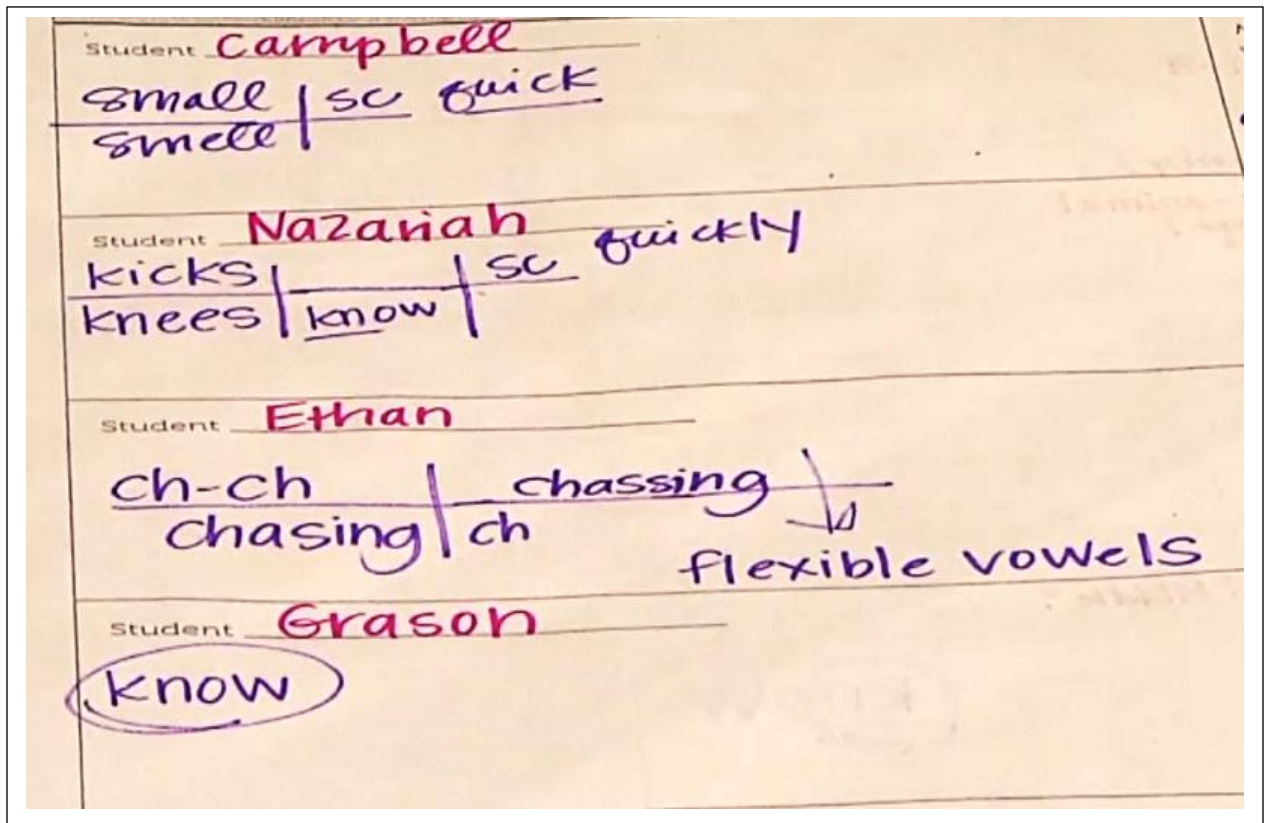 Student Campbell
small | sc quick
smell |
Student Nazariah
kicks | | sc quickly
knees | know |
Student Ethan
ch-ch | chassing
chasing | ch
flexible vowels
Student Grason
know